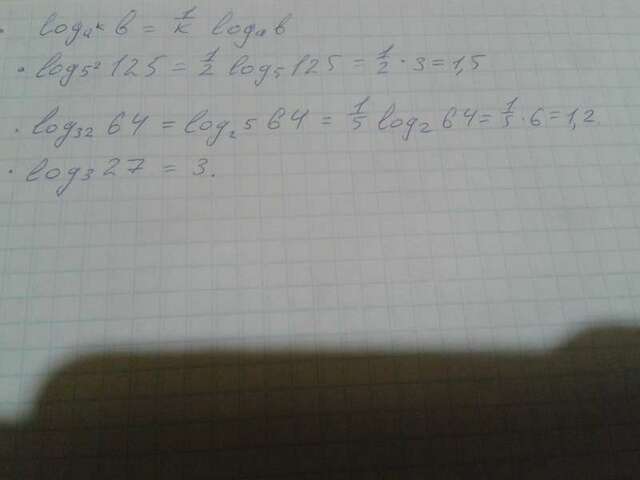 · logₐᵏ b = 1/k logₐ b
· log₅² 125 = 1/2 log₅ 125 = 1/2 · 3 = 1,5
· log₃₂ 64 = log₂⁵ 64 = 1/5 log₂ 64 = 1/5 · 6 = 1,2
· log₃ 27 = 3.